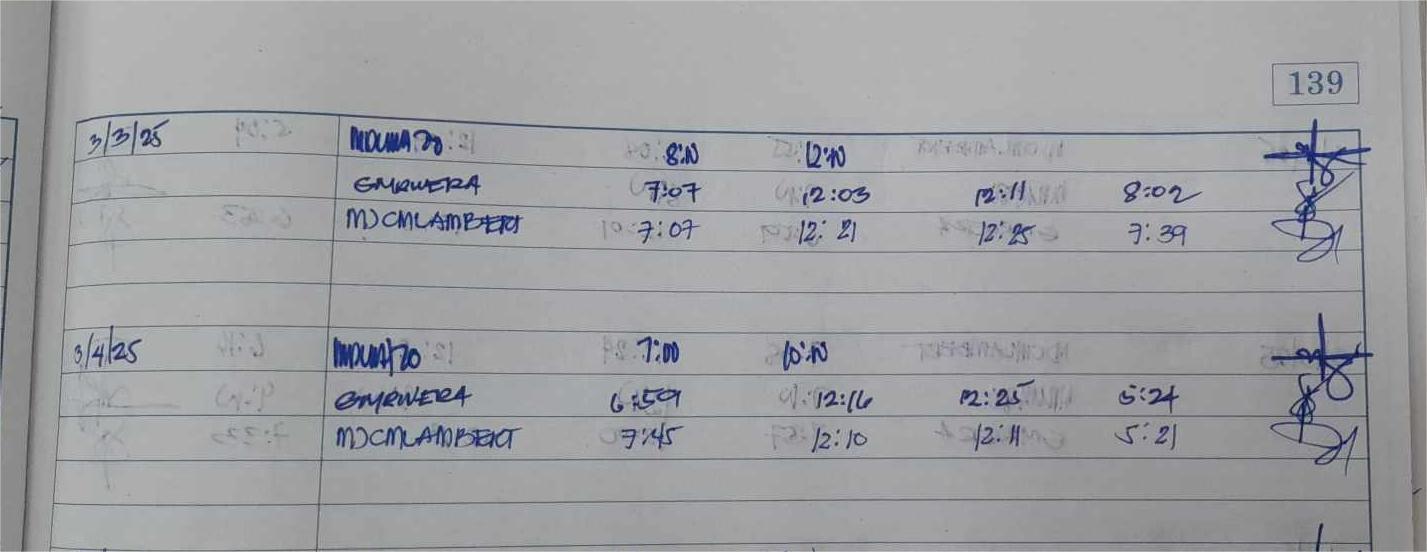 139
3/3/25 8:10 12:10
GMRIVERA 7:07 12:03 12:11 8:02
MJCMLAMBERT 7:07 12:21 12:25 7:39
3/4/25 7:00 10:10
GMRIVERA 6:59 12:16 12:25 5:24
MJCMLAMBERT 7:45 12:10 12:11 5:21